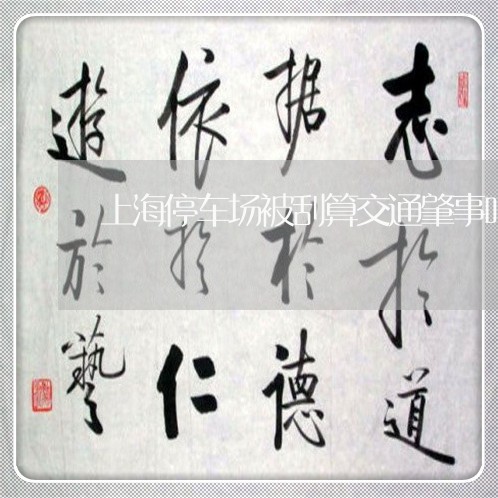 志於道
据於德
依於仁
遊於藝
上海停车场被刮算交通肇事